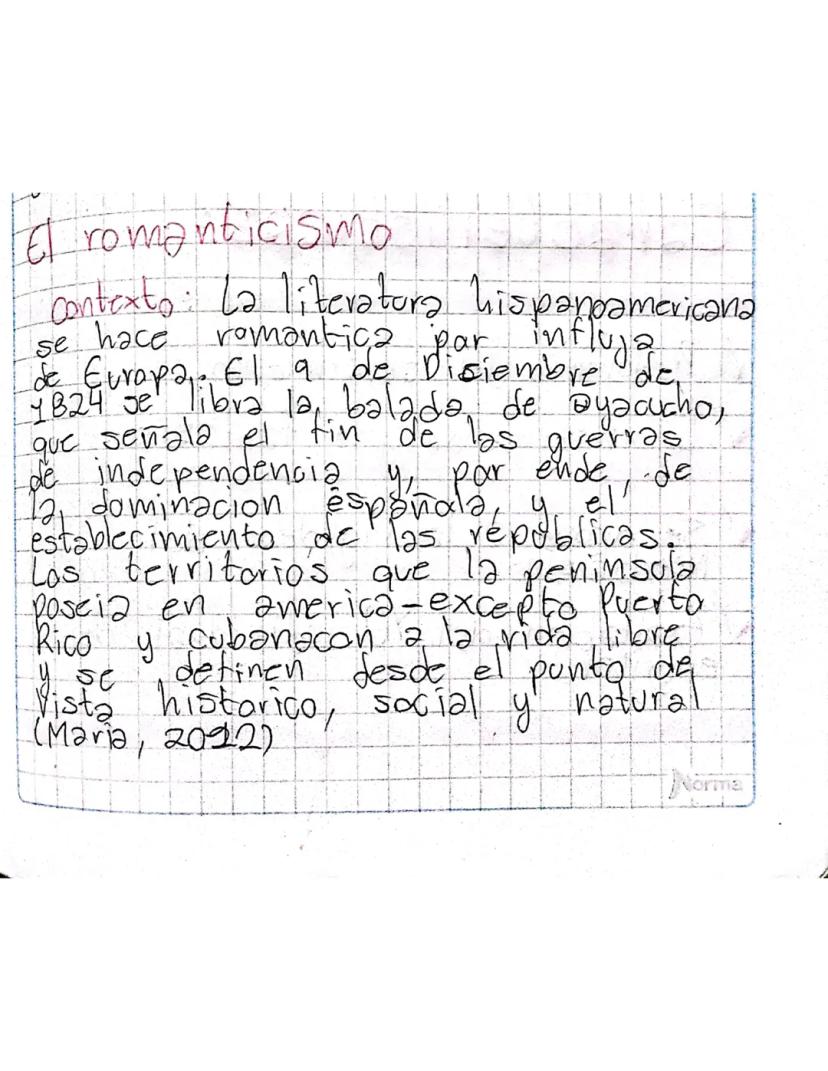 El romanticismo
contexto: La literatura hispanoamericana
se hace romantica por influja
de Europa. El 9 de Disiembre de
1824 se libra la balada de ayacucho,
que señala el fin de las guerras
de independencia y, por ende, de
la dominacion española, y el
establecimiento de las repúblicas.
Los territorios que la peninsula
poseia en america-excepto Puerto
Rico y cubanacon a la vida libre
y se definen desde el punto de
Vista historico, social y natural
(Maria, 2012)
Norma